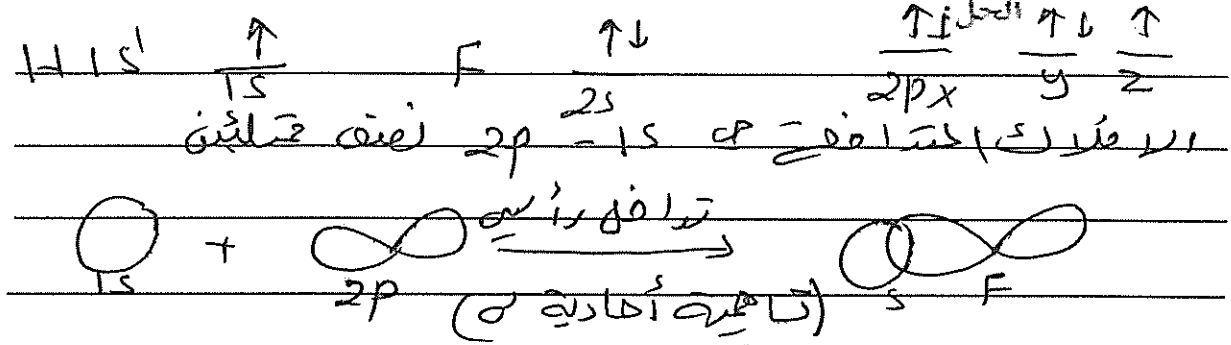 الحل
H 1s¹ ↑ 1s F ↑↓ 2s ↑↓ 2px ↑↓ y ↑ z
الافلاك المتداخلة هي 1s - 2p نصف ممتلئين
1s + 2p تداخل رأسي → s F
(تساهمية أحادية σ)